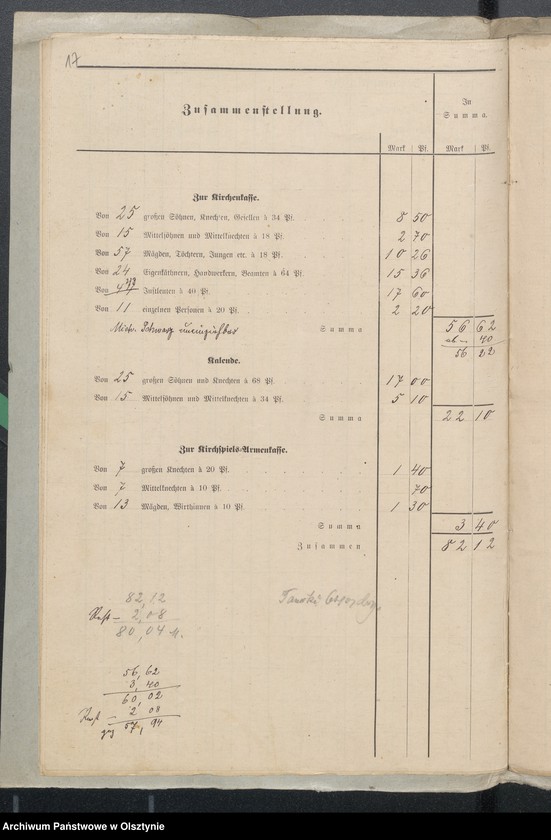 17
Zusammenstellung.
In
Summa.
Mark Pf. Mark Pf.
Zur Kirchenkasse.
Von 25 großen Söhnen, Knechten, Gesellen à 34 Pf. 8 50
Von 15 Mittelsöhnen und Mittelknechten à 18 Pf. 2 70
Von 57 Mägden, Töchtern, Jungen etc. à 18 Pf. 10 26
Von 24 Eigenkäthnern, Handwerkern, Beamten à 64 Pf. 15 36
Von Instleuten à 40 Pf. 17 60
Von 11 einzelnen Personen à 20 Pf. 2 20
Schwarz uneinziehbar Summa 56 62
ab — 40
56 22
Kalende.
Von 25 großen Söhnen und Knechten à 68 Pf. 17 00
Von 15 Mittelsöhnen und Mittelknechten à 34 Pf. 5 10
Summa 22 10
Zur Kirchspiels-Armenkasse.
Von 7 großen Knechten à 20 Pf. 1 40
Von 7 Mittelknechten à 10 Pf. 70
Von 13 Mägden, Wirthinnen à 10 Pf. 1 30
Summa 3 40
Zusammen 82 12
82,12
Rest — 2,08
80,04 M.
56,62
3,40
60,02
Rest — 2 08
57,94
Archiwum Państwowe w Olsztynie